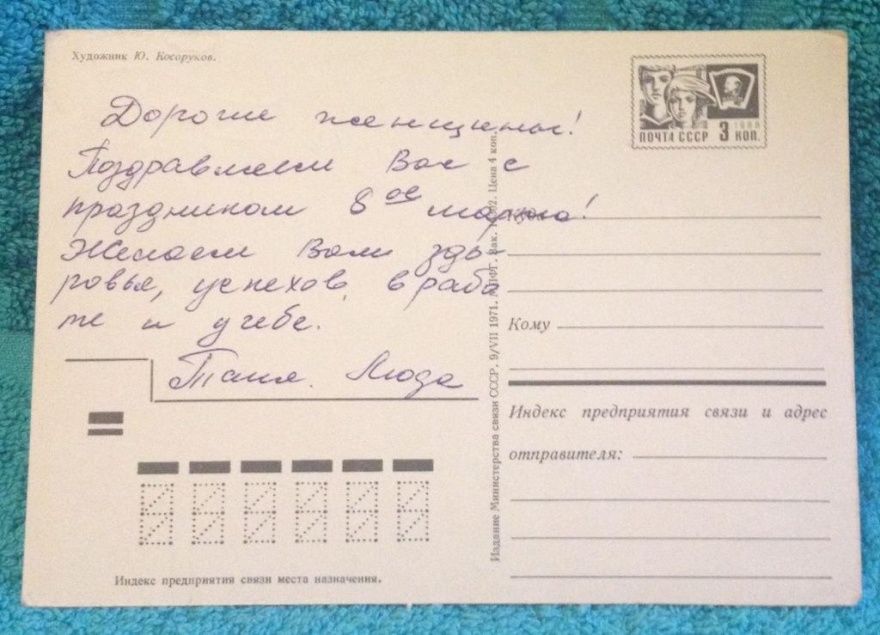 Художник Ю. Косоруков.
ПОЧТА СССР 3 КОП.
1968
Дорогие женщины!
Поздравляем Вас с
праздником 8ое марта!
Желаем Вам здо-
ровья, успехов в рабо
те и учебе.
Таня. Люда
Куда
Кому
Индекс предприятия связи и адрес
отправителя:
Издание Министерства связи СССР. 9/VII 1971. Зак. Цена 4 коп.
Индекс предприятия связи места назначения.